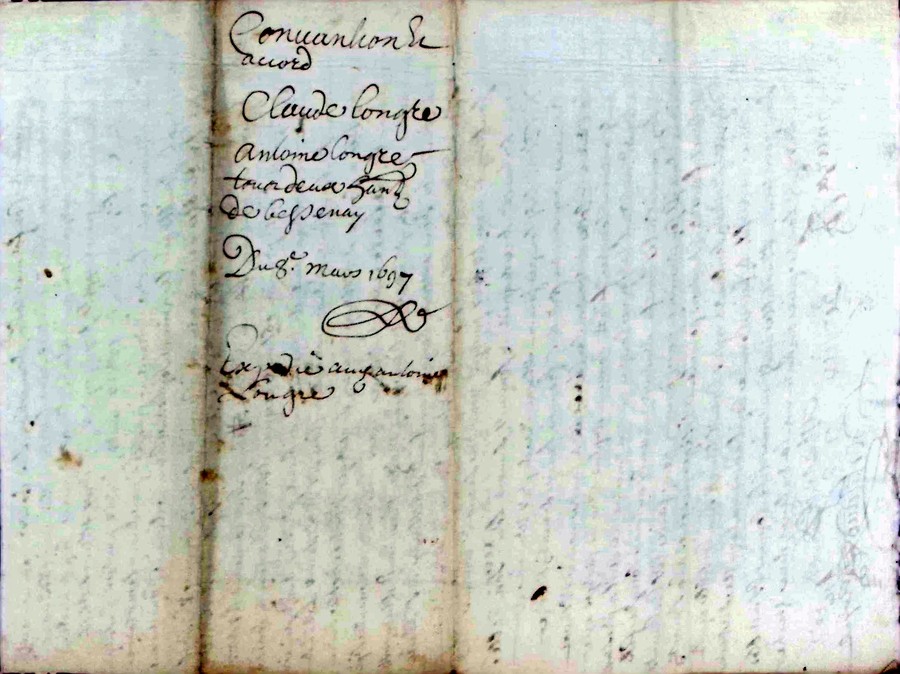 Convantion Et
accord
Claude longre
Antoine longre
tous deux
de bessenay
Du 8e mars 1697
Expedié aud antoine
Longre